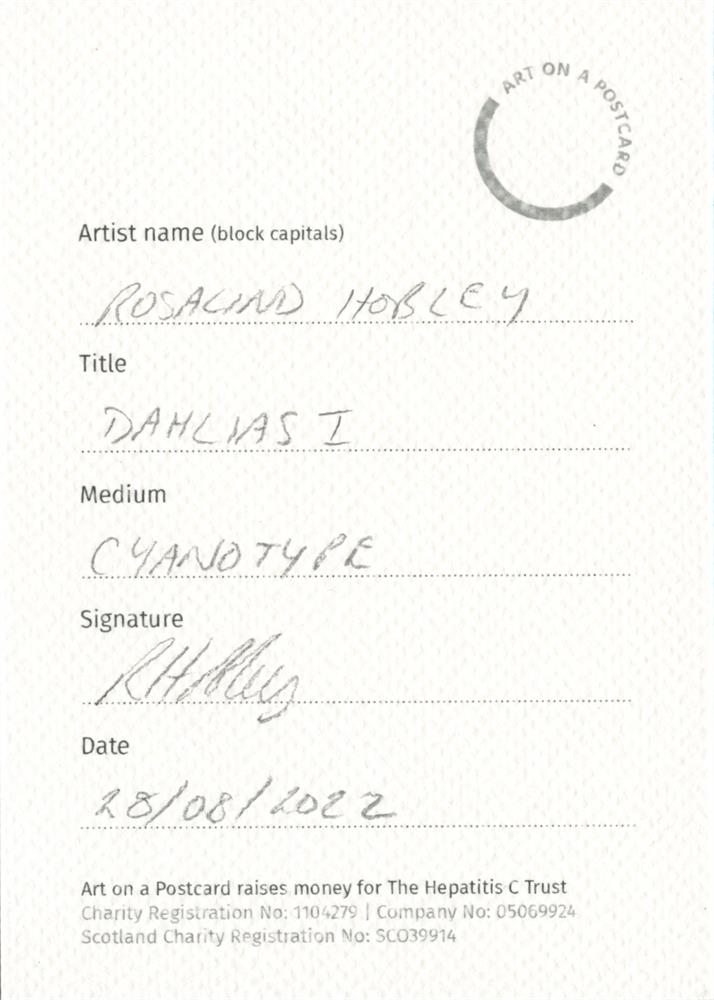 ART ON A POSTCARD
Artist name (block capitals)
ROSALIND HOBLEY
Title
DAHLIAS I
Medium
CYANOTYPE
Signature
RHobley
Date
28/08/2022
Art on a Postcard raises money for The Hepatitis C Trust
Charity Registration No: 1104279 | Company No: 05069924
Scotland Charity Registration No: SCO39914